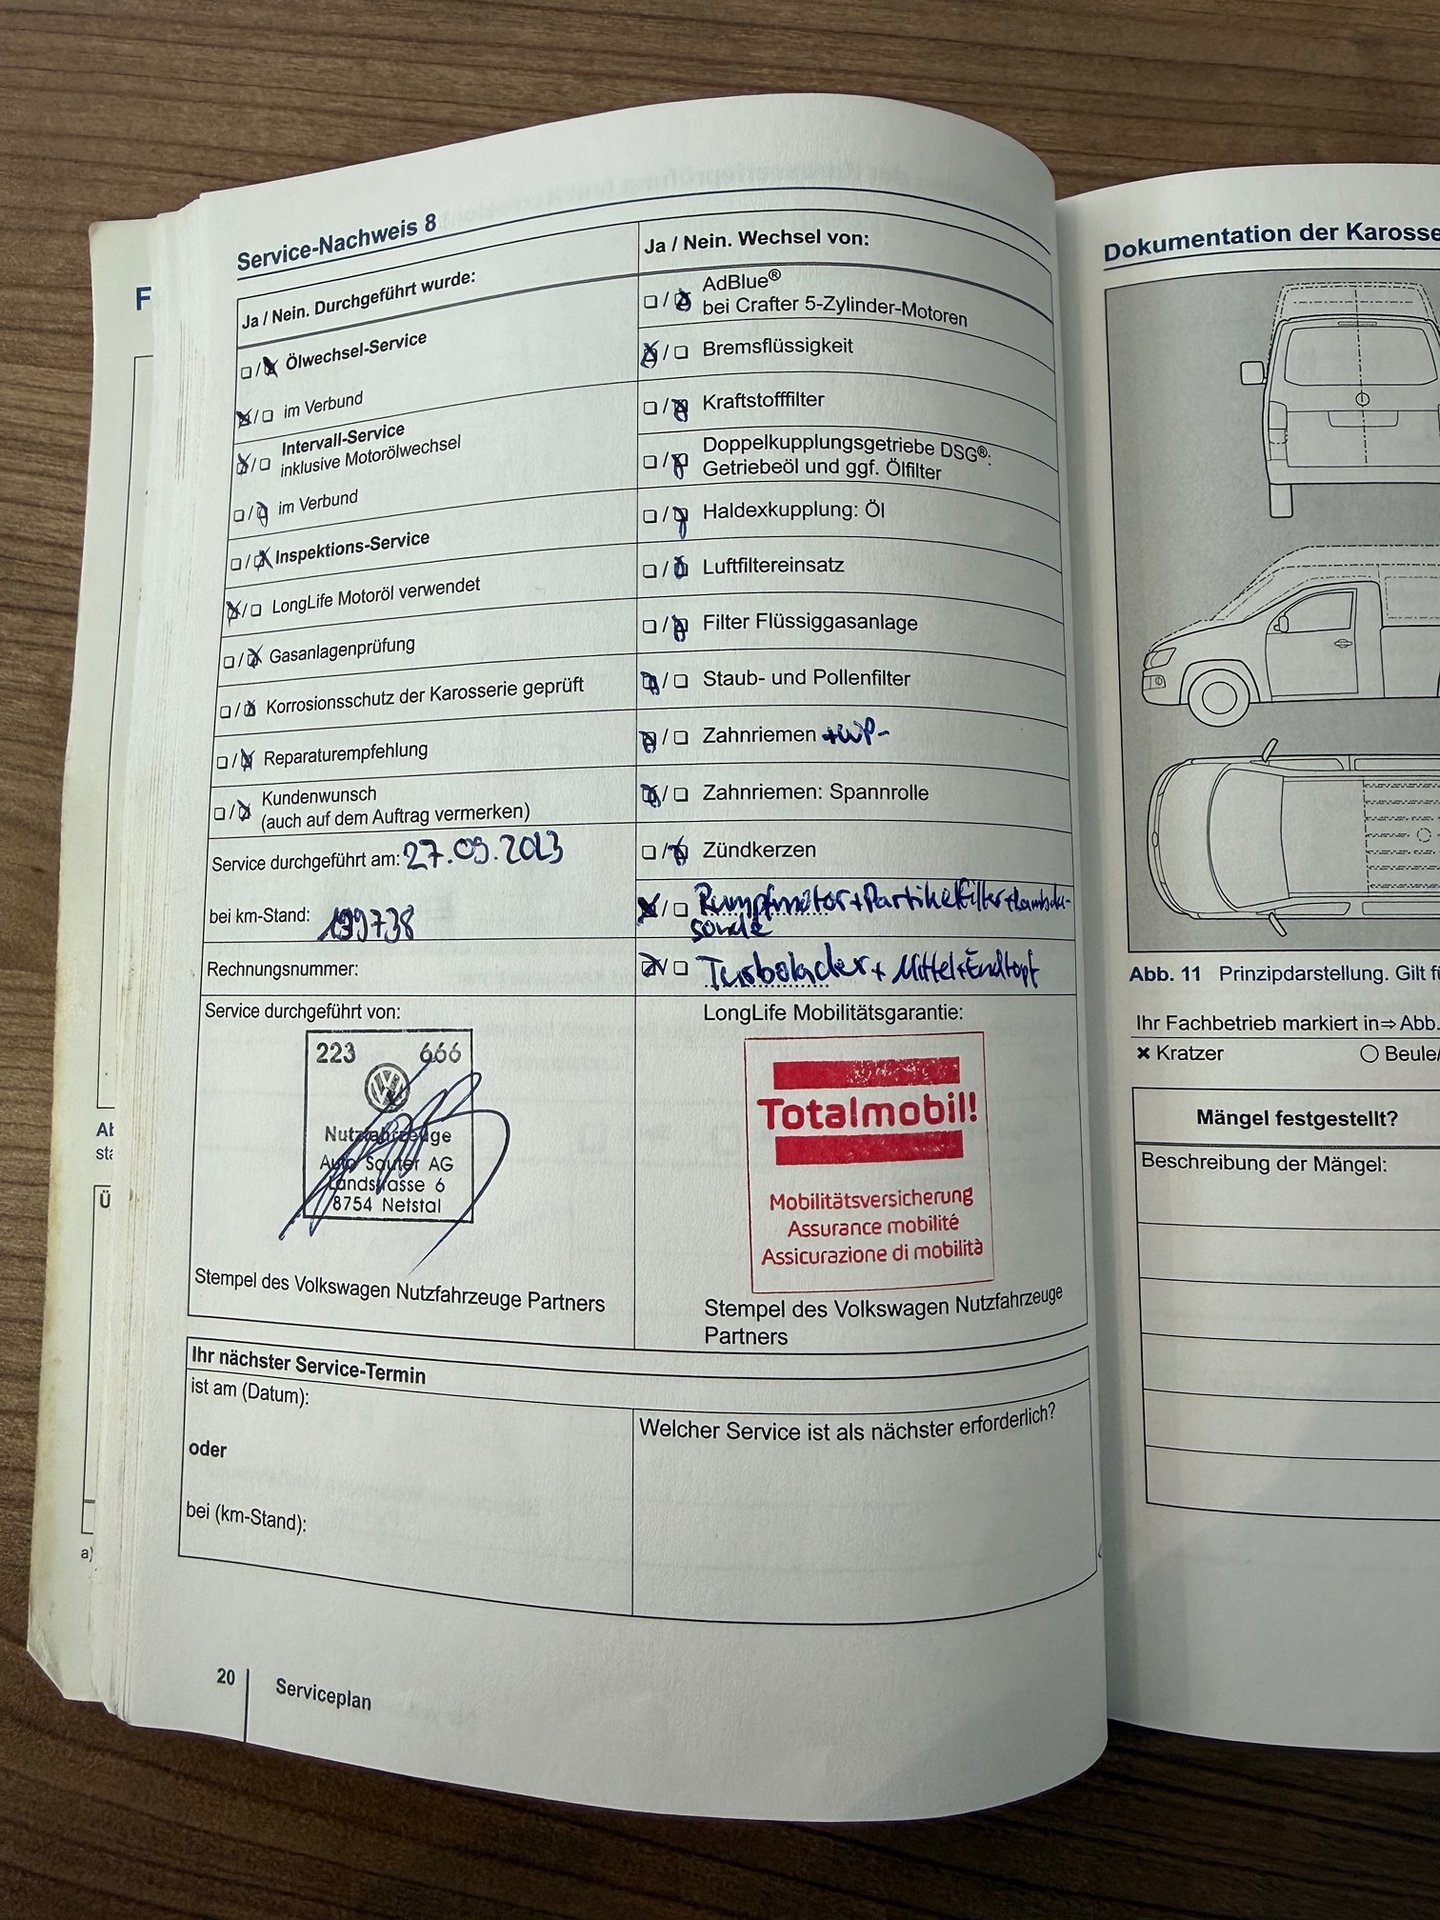 F
Service-Nachweis 8
Ja / Nein. Durchgeführt wurde:
Ölwechsel-Service
im Verbund
Intervall-Service
inklusive Motorölwechsel
im Verbund
Inspektions-Service
LongLife Motoröl verwendet
Gasanlagenprüfung
Korrosionsschutz der Karosserie geprüft
Reparaturempfehlung
Kundenwunsch
(auch auf dem Auftrag vermerken)
Service durchgeführt am: 27.09.2023
bei km-Stand: 199738
Rechnungsnummer:
Service durchgeführt von:
223 666
Nutzfahrzeuge
Auto Sauter AG
Landstrasse 6
8754 Netstal
Stempel des Volkswagen Nutzfahrzeuge Partners
Ja / Nein. Wechsel von:
AdBlue®
bei Crafter 5-Zylinder-Motoren
Bremsflüssigkeit
Kraftstofffilter
Doppelkupplungsgetriebe DSG®:
Getriebeöl und ggf. Ölfilter
Haldexkupplung: Öl
Luftfiltereinsatz
Filter Flüssiggasanlage
Staub- und Pollenfilter
Zahnriemen +WP-
Zahnriemen: Spannrolle
Zündkerzen
Rumpfmotor+Partikelfilter+Lambda-
sonde
Turbolader + Mittel+Endtopf
LongLife Mobilitätsgarantie:
Totalmobil!
Mobilitätsversicherung
Assurance mobilité
Assicurazione di mobilità
Stempel des Volkswagen Nutzfahrzeuge
Partners
Ihr nächster Service-Termin
ist am (Datum):
oder
bei (km-Stand):
Welcher Service ist als nächster erforderlich?
20 Serviceplan
Dokumentation der Karosse
Abb. 11 Prinzipdarstellung. Gilt f
Ihr Fachbetrieb markiert in⇒ Abb.
Kratzer
Beule/
Mängel festgestellt?
Beschreibung der Mängel:
Ab
sta
Ü
a)